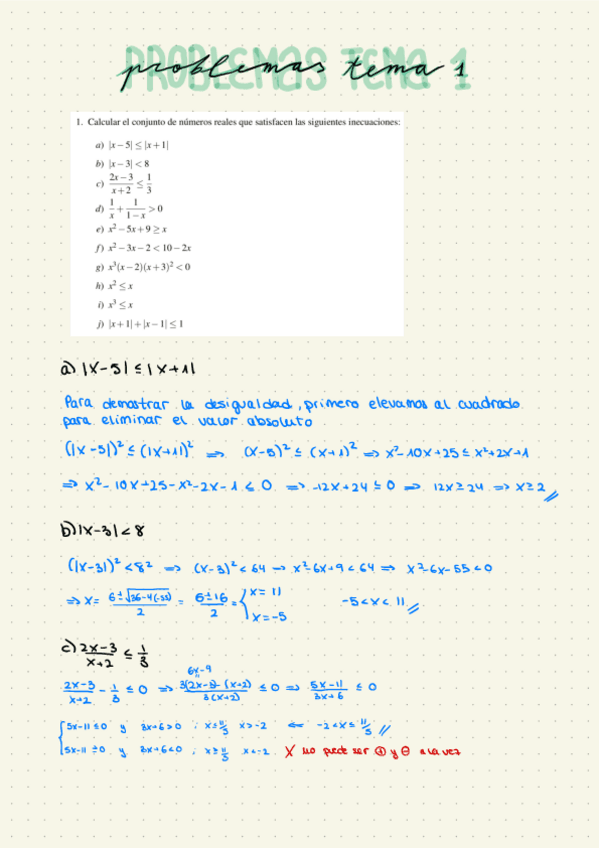 PROBLEMAS TEMA 1
problemas tema 1
1. Calcular el conjunto de números reales que satisfacen las siguientes inecuaciones:
a) |x−5| ≤ |x+1|
b) |x−3| < 8
c) (2x−3)/(x+2) ≤ 1/3
d) 1/x + 1/(1−x) > 0
e) x² − 5x + 9 ≥ x
f) x² − 3x − 2 < 10 − 2x
g) x³(x−2)(x+3)² < 0
h) x² ≤ x
i) x³ ≤ x
j) |x+1| + |x−1| ≤ 1
a) |x−5| ≤ |x+1|
Para demostrar la desigualdad, primero elevamos al cuadrado
para eliminar el valor absoluto
(|x−5|)² ≤ (|x+1|)² ⇒ (x−5)² ≤ (x+1)² ⇒ x²−10x+25 ≤ x²+2x+1
⇒ x²−10x+25−x²−2x−1 ≤ 0 ⇒ −12x+24 ≤ 0 ⇒ 12x ≥ 24 ⇒ x ≥ 2 //
b) |x−3| < 8
(|x−3|)² < 8² ⇒ (x−3)² < 64 → x²−6x+9 < 64 ⇒ x²−6x−55 < 0
⇒ x = (6±√(36−4(−55)))/2 = (6±16)/2 = { x = 11 x = −5 −5 < x < 11 //
c) (2x−3)/(x+2) ≤ 1/3
6x−9
(2x−3)/(x+2) − 1/3 ≤ 0 ⇒ (3(2x−3)−(x+2))/(3(x+2)) ≤ 0 ⇒ (5x−11)/(3x+6) ≤ 0
{ 5x−11 ≤ 0 y 3x+6 > 0 ; x ≤ 11/5 x > −2 ⇐ −2 < x ≤ 11/5 //
5x−11 ≥ 0 y 3x+6 < 0 ; x ≥ 11/5 x < −2 X no puede ser ⊕ y ⊖ a la vez